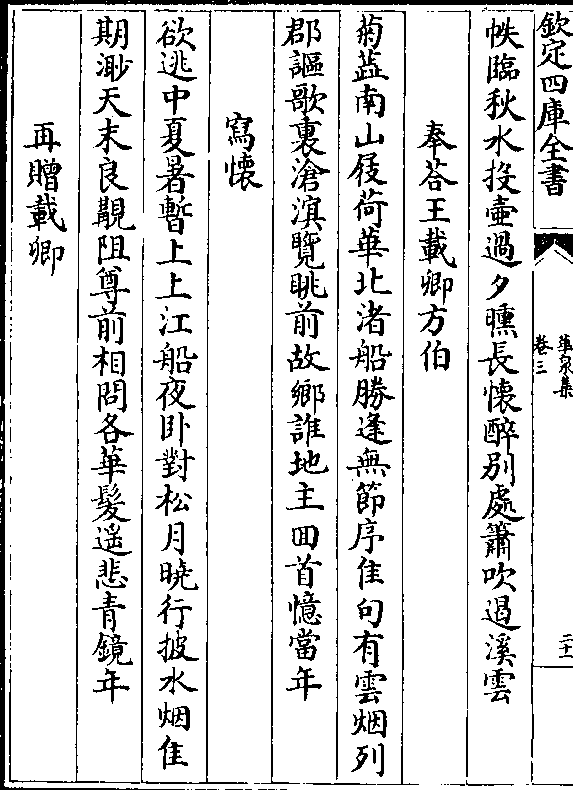 欽定四庫全書
華泉集
卷三
二十一
帙臨秋水投壷過夕曛長懐醉别處簫吹遏溪雲
奉荅王載卿方伯
菊蘂南山屐荷華北渚船勝逢無節序佳句有雲烟列
郡謳歌裏滄溟覽眺前故鄉誰地主囬首憶當年
寫懐
欲逃中夏暑暫上上江船夜卧對松月曉行披水烟佳
期渺天末良覿阻尊前相問各華髮遥悲青鏡年
再贈載卿